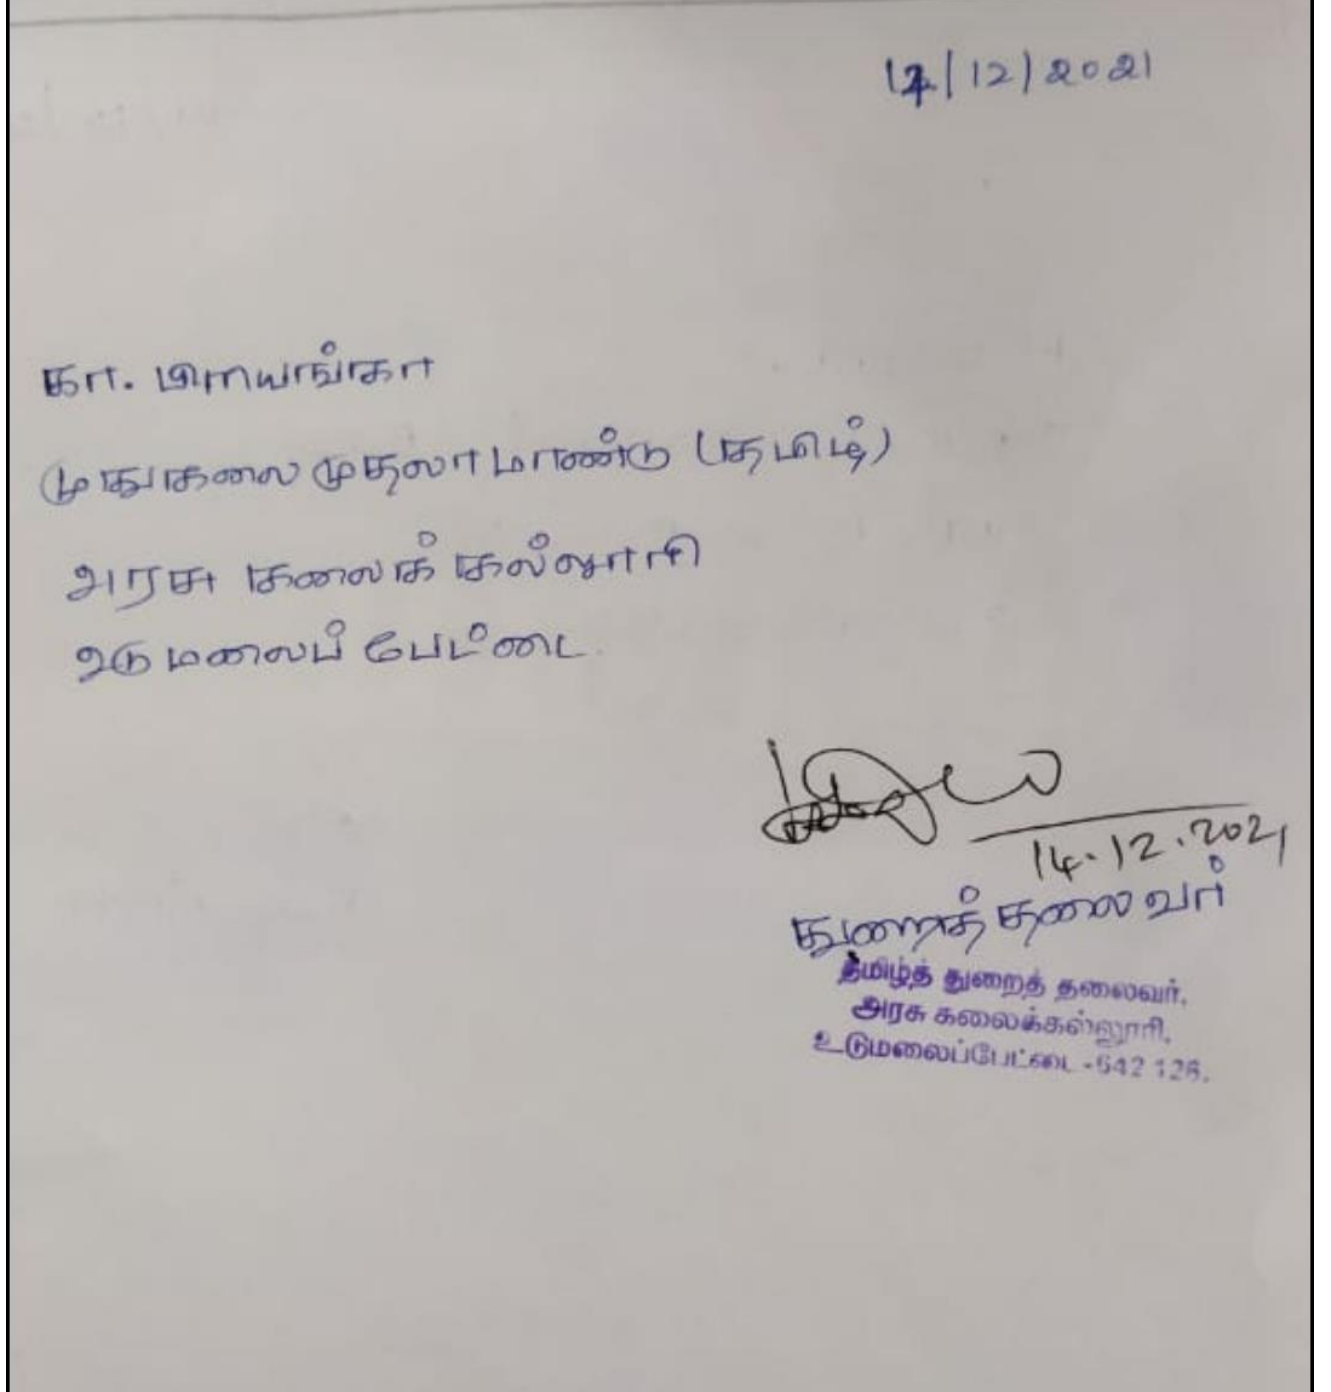 14/12/2021
கா. பிரியங்கா
முதுகலை முதலாமாண்டு (தமிழ்)
அரசு கலைக் கல்லூரி
உடுமலைப் பேட்டை
14.12.2021
துறைத் தலைவர்
தமிழ்த் துறைத் தலைவர்,
அரசு கலைக்கல்லூரி,
உடுமலைப்பேட்டை -642 126.